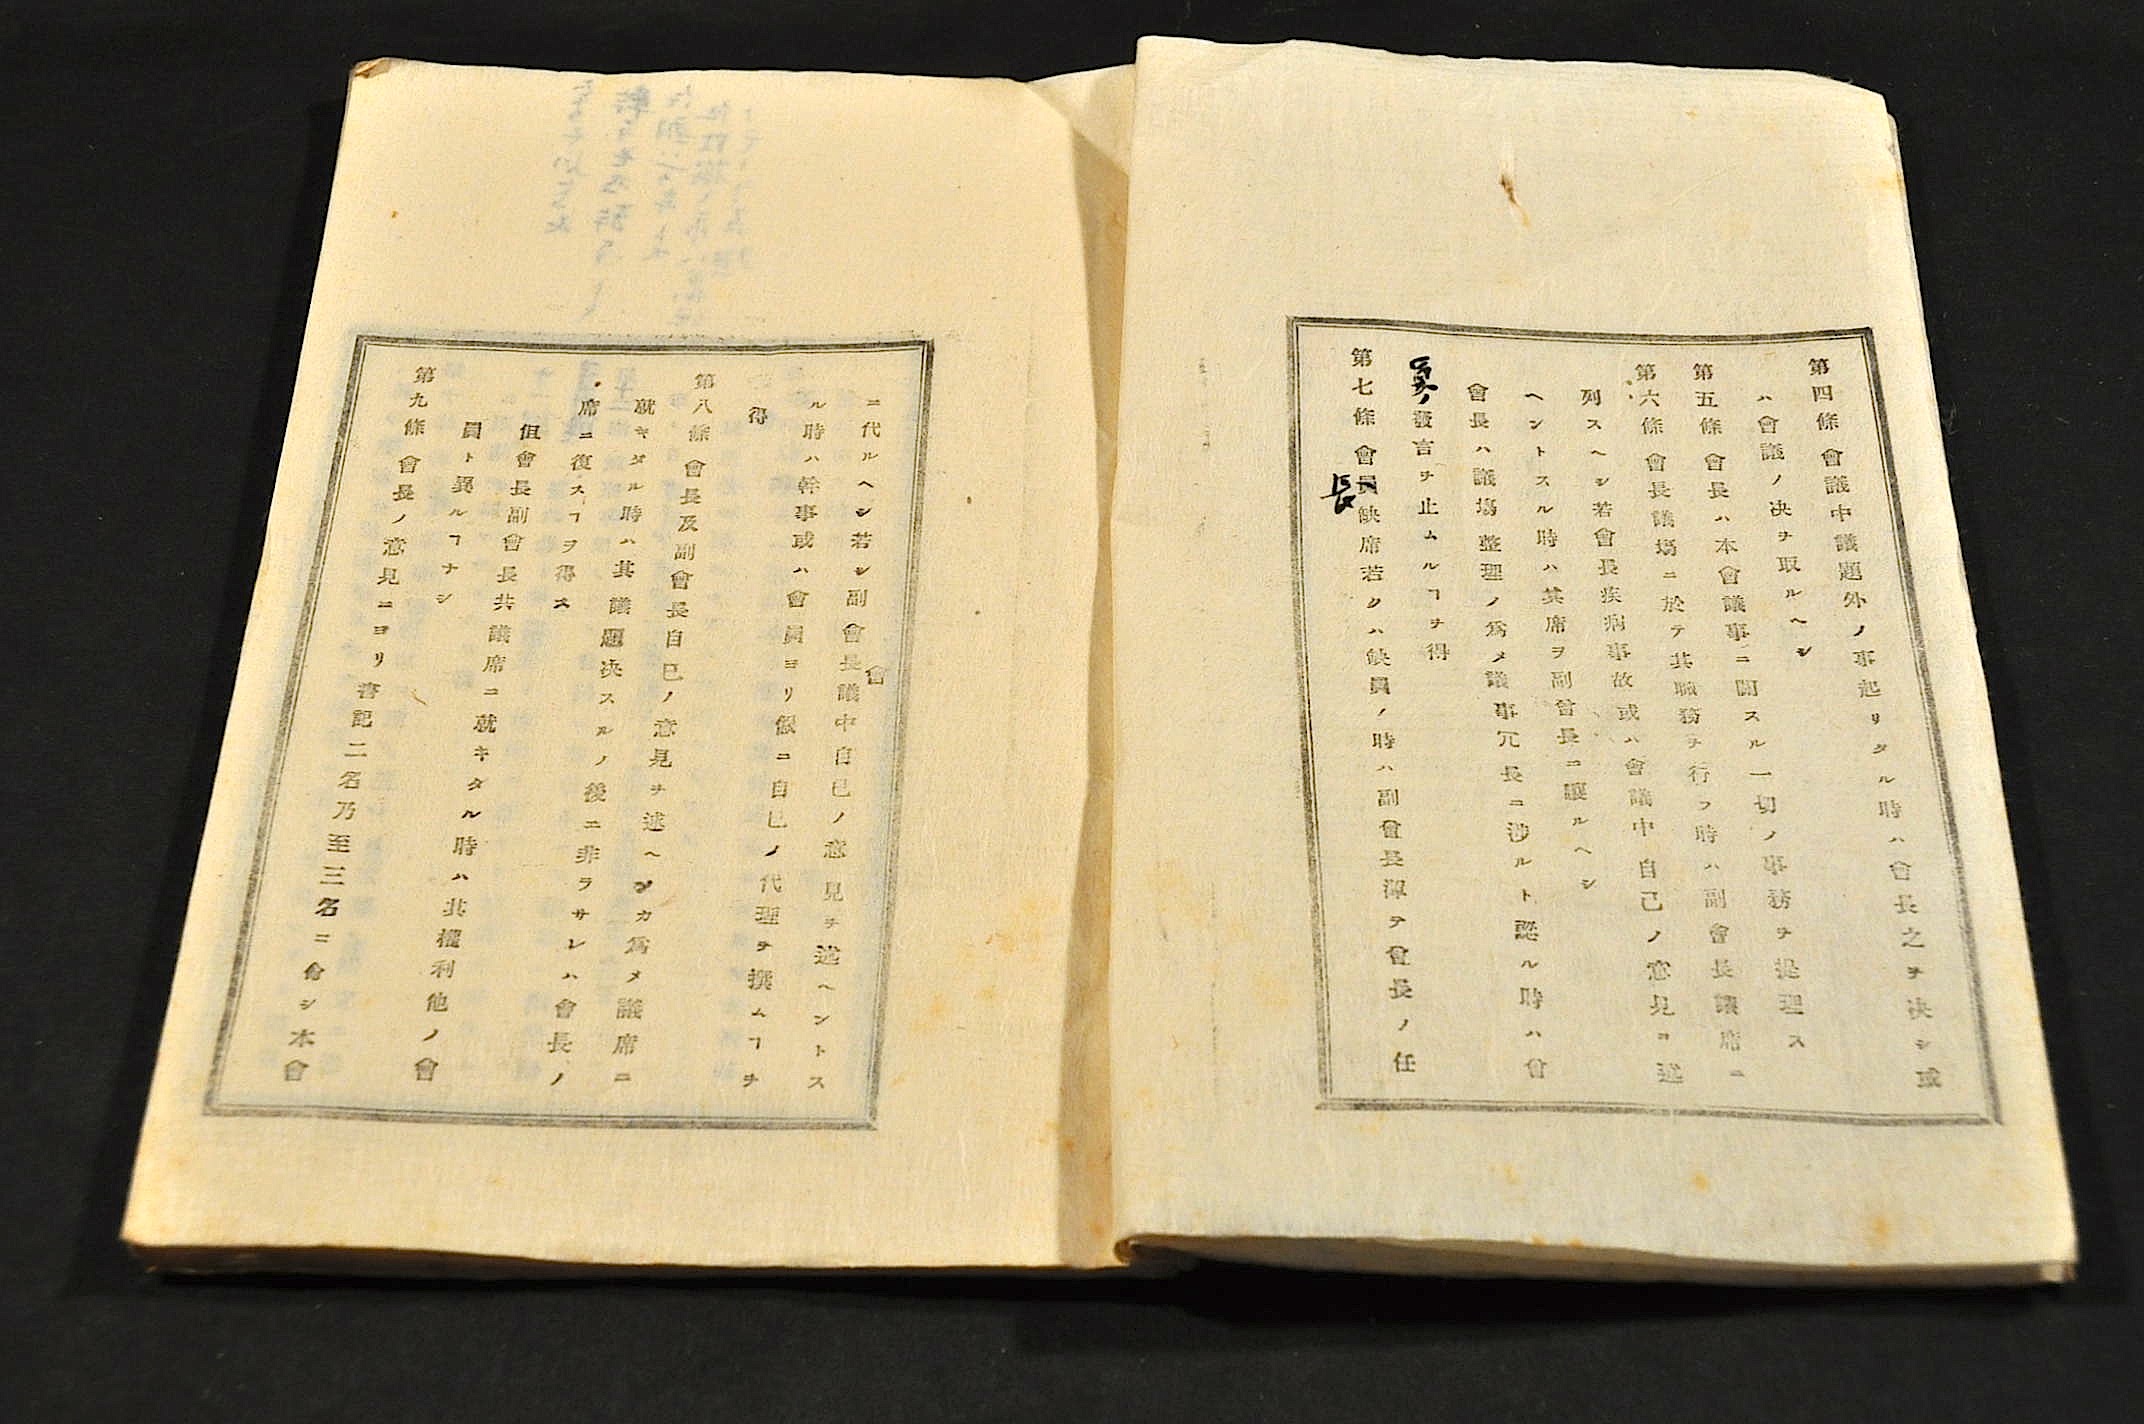 第四條 會議中議題外ノ事起リタル時ハ會長之ヲ決シ或
ハ會議ノ決ヲ取ルヘシ
第五條 會長ハ本會議事ニ關スル一切ノ事務ヲ提理ス
第六條 會長議塲ニ於テ其職務ヲ行フ時ハ副會長議席ニ
列スヘシ若會長疾病事故或ハ會議中自己ノ意見ヲ述
ヘントスル時ハ其席ヲ副會長ニ讓ルヘシ
會長ハ議塲整理ノ爲メ議事冗長ニ渉ルト認ル時ハ會
員ノ發言ヲ止ムルヿヲ得
第七條 會員缺席若クハ缺員ノ時ハ副會長渾テ會長ノ任
長
ニ代ルヘシ若シ副會長議中自己ノ意見ヲ述ヘントス
會
ル時ハ幹事或ハ會員ヨリ假ニ自己ノ代理ヲ撰ムヿヲ
得
第八條 會長及副會長自己ノ意見ヲ述ヘンカ爲メ議席ニ
就キタル時ハ其議題決スルノ後ニ非ラサレハ會長ノ
席ニ復スヿヲ得ス
但會長副會長共議席ニ就キタル時ハ其權利他ノ會
員ト異ルヿナシ
第九條 會長ノ意見ニヨリ書記二名乃至三名ニ命シ本會